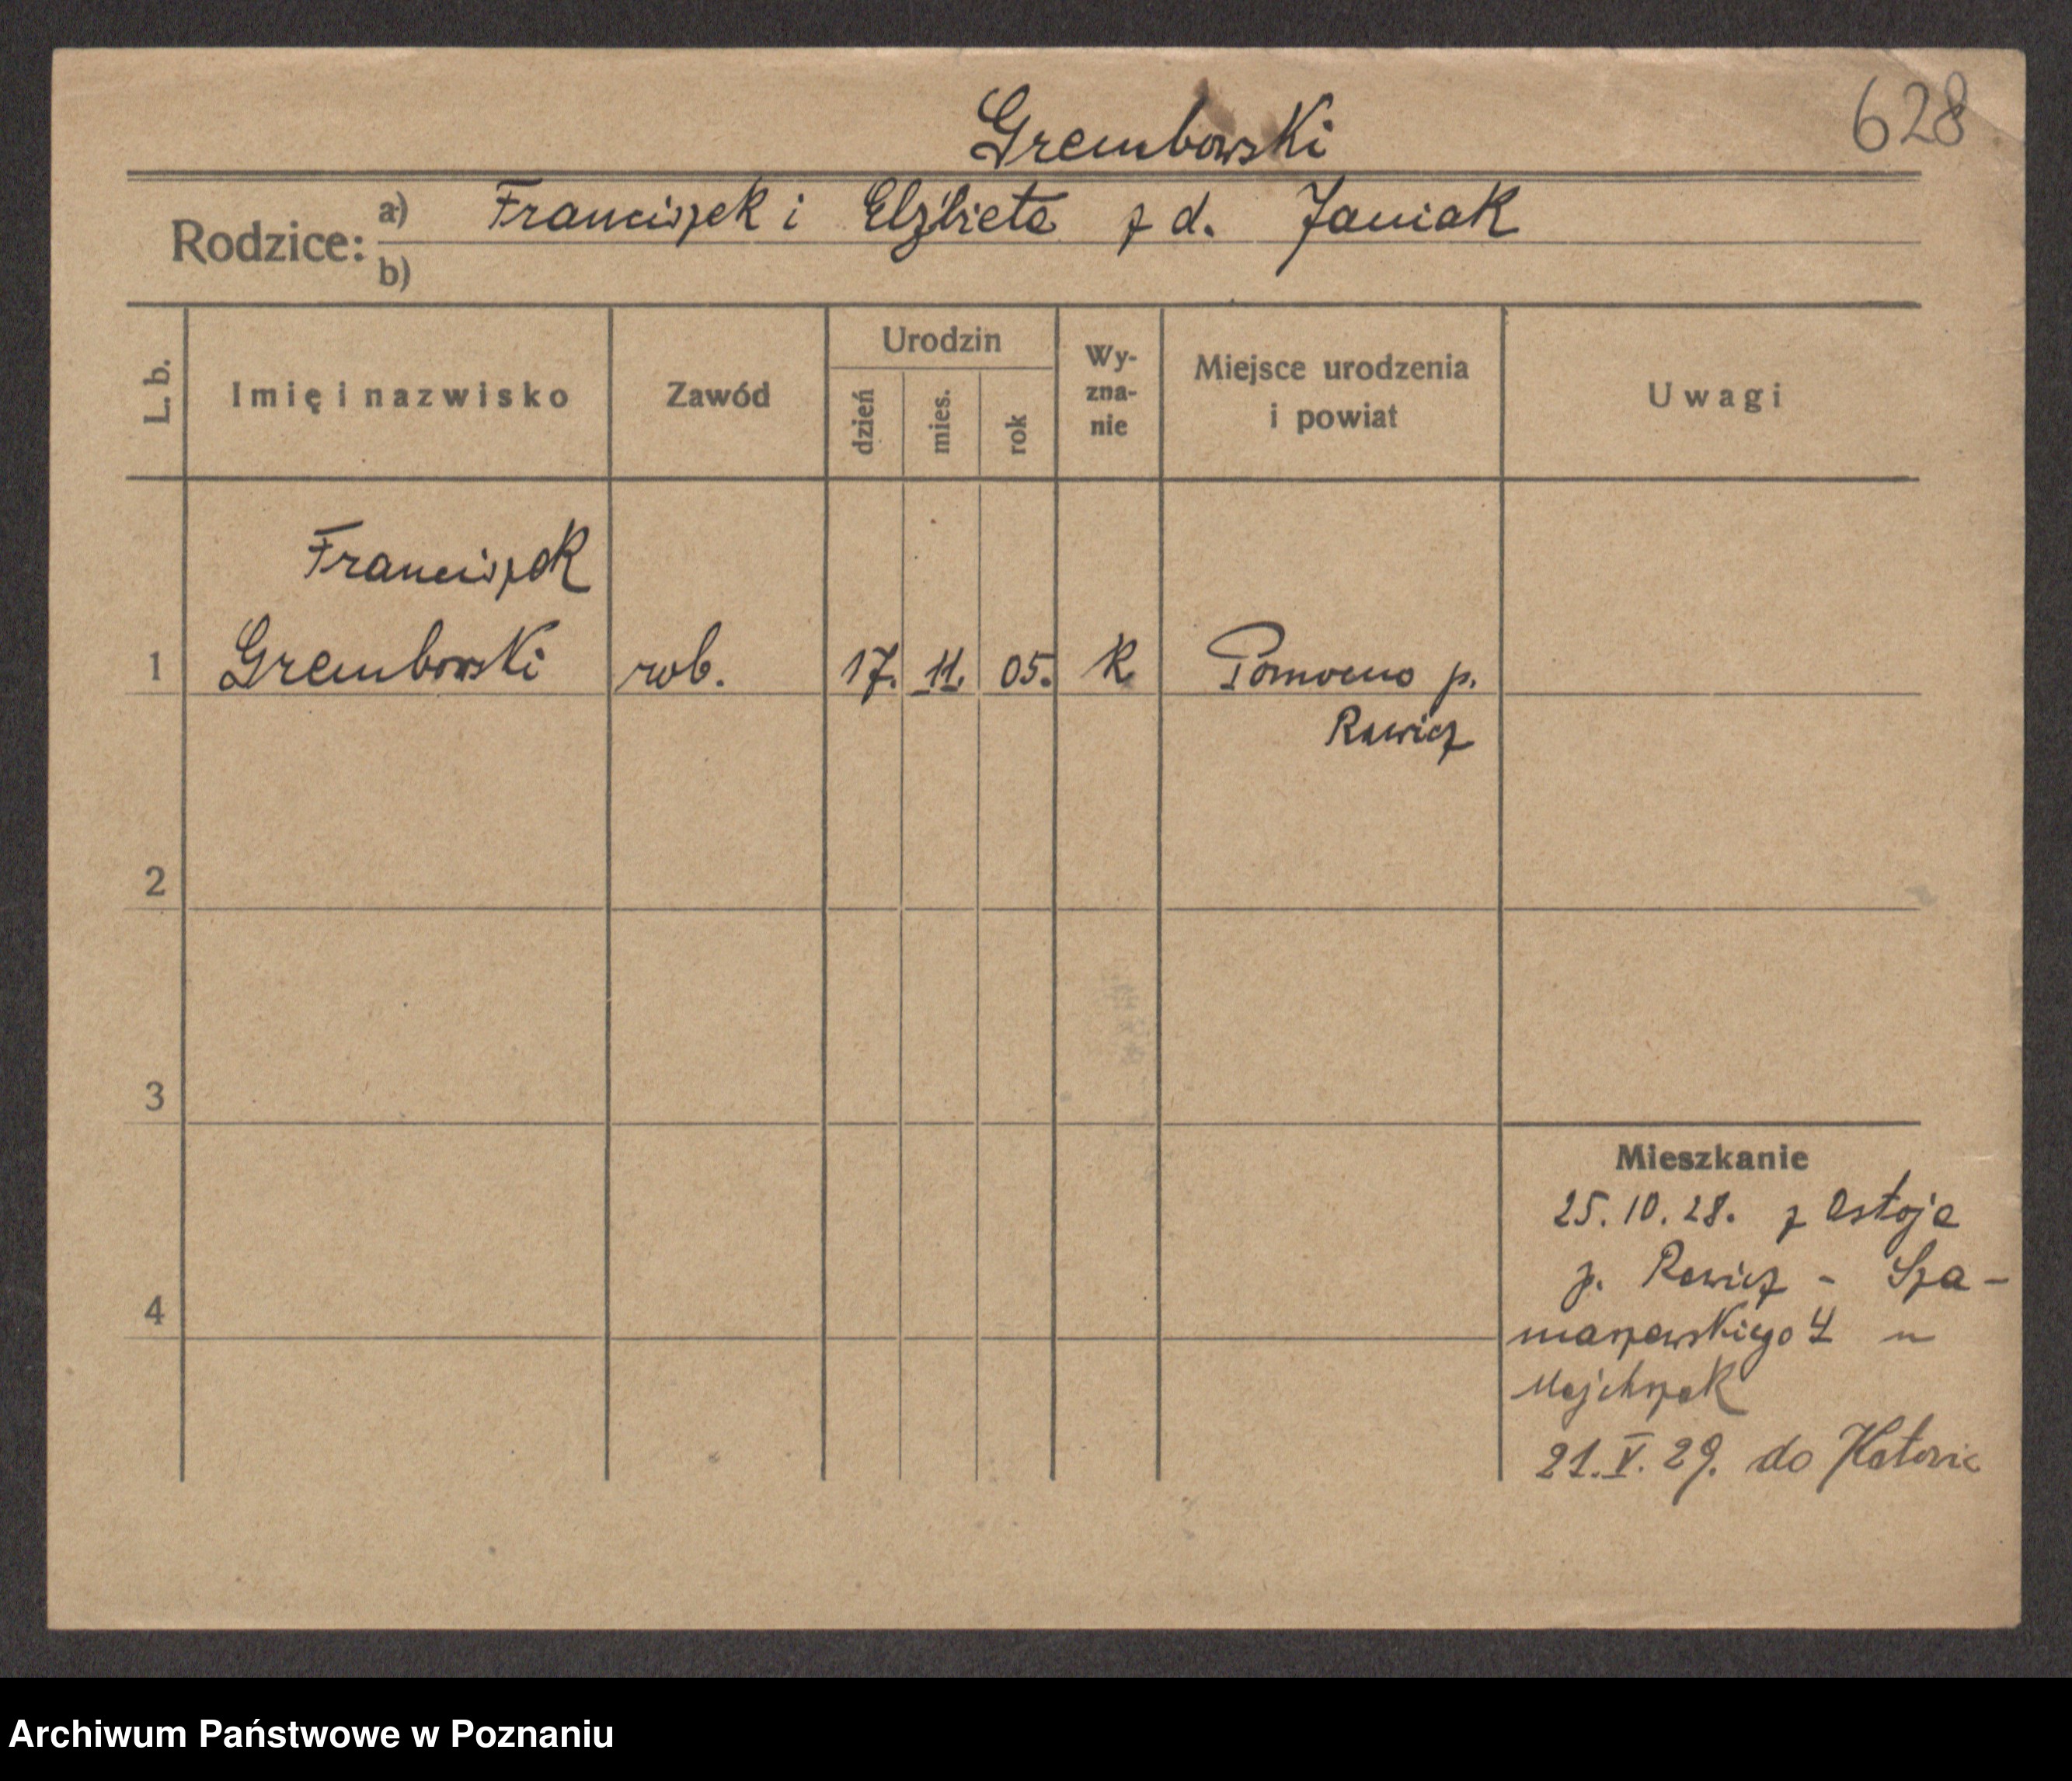 Grembowski
628
Rodzice:
a) Franciszek i Elżbieta z d. Janiak
b)
L. b.
Imię i nazwisko
Zawód
Urodzin
dzień
mies.
rok
Wy-
zna-
nie
Miejsce urodzenia
i powiat
Uwagi
Franciszek
1 Grembowski rob. 17. 11. 05. k p.
Rawicz
2
3
4
Mieszkanie
25. 10. 28. z Ostoje
p. Rawicz - Sza-
marzewskiego 4 u
Majchrzak
21. V. 29. do Katowic
Archiwum Państwowe w Poznaniu